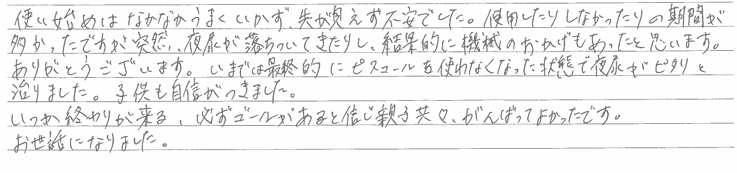 使い始めはなかなかうまくいかず、先が見えず不安でした。使用したりしなかったりの期間が
多かったですが突然、夜尿が落ちついてきたりし、結果的に機械のおかげもあったと思います。
ありがとうございます。いまでは最終的にピスコールを使わなくなった状態で夜尿がピタリと
治りました。子供も自信がつきました。
いつか終わりが来る、必ずゴールがあると信じ親子共々、がんばってよかったです。
お世話になりました。